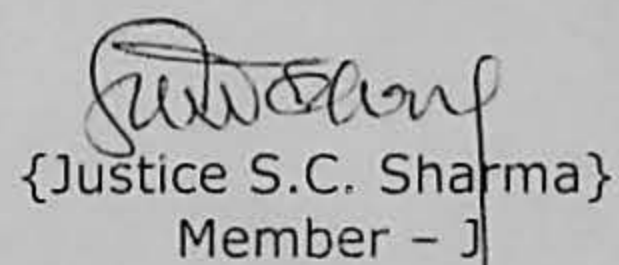 {Justice S.C. Sharma}
Member – J